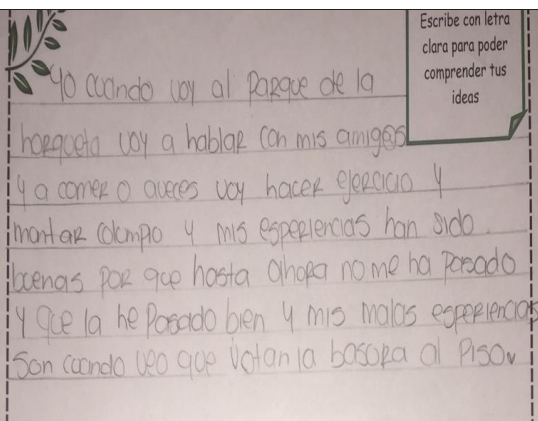 Escribe con letra
clara para poder
comprender tus
ideas
yo cuando voy al parque de la
horqueta voy a hablar con mis amigos
y a comer o aveces voy hacer ejercicio y
montar colompio y mis esperiencias han sido
buenas por que hasta ahora no me ha pasado
y que la he pasado bien y mis malas esperiencias
son cuando veo que votan la basora al piso.